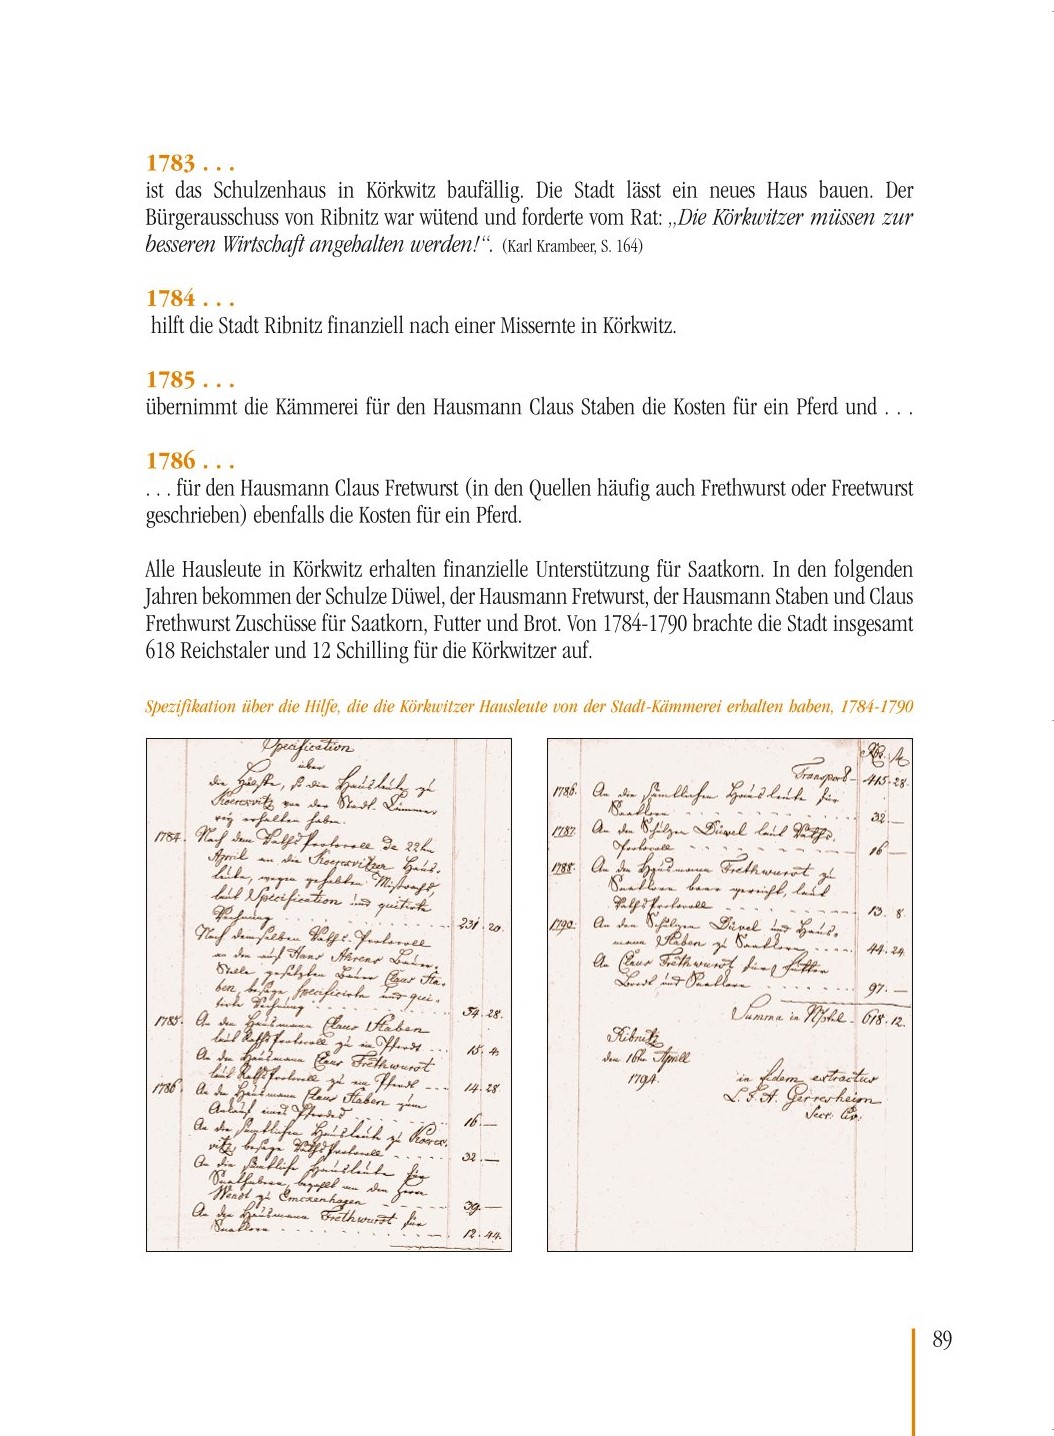 1783 . . .
ist das Schulzenhaus in Körkwitz baufällig. Die Stadt lässt ein neues Haus bauen. Der
Bürgerausschuss von Ribnitz war wütend und forderte vom Rat: „Die Körkwitzer müssen zur
besseren Wirtschaft angehalten werden!“. (Karl Krambeer, S. 164)
1784 . . .
hilft die Stadt Ribnitz finanziell nach einer Missernte in Körkwitz.
1785 . . .
übernimmt die Kämmerei für den Hausmann Claus Staben die Kosten für ein Pferd und . . .
1786 . . .
. . . für den Hausmann Claus Fretwurst (in den Quellen häufig auch Frethwurst oder Freetwurst
geschrieben) ebenfalls die Kosten für ein Pferd.
Alle Hausleute in Körkwitz erhalten finanzielle Unterstützung für Saatkorn. In den folgenden
Jahren bekommen der Schulze Düwel, der Hausmann Fretwurst, der Hausmann Staben und Claus
Frethwurst Zuschüsse für Saatkorn, Futter und Brot. Von 1784-1790 brachte die Stadt insgesamt
618 Reichstaler und 12 Schilling für die Körkwitzer auf.
Spezifikation über die Hilfe, die die Körkwitzer Hausleute von der Stadt-Kämmerei erhalten haben, 1784-1790
Specification
über
die Hülffe, so die Hausleute zu
Koerckvitz von der Stadt Cämme-
rey erhalten haben.
1784. Nach dem Raths Protocoll de 22ten
April an die Koerckvitzer Haus-
leute, wegen gehabten Mißwachs,
laut Specification und quitirte
Rechnung 231. 20.
Nach demselben Raths-Protocoll
an den auf Hans Ahrens Bauer-
Stelle gesetzten Bauer Claus Sta-
ben, besage specificirte und qui-
tirte Rechnung 54. 28.
1785. An den Hausmann Claus Staben
laut Raths Protocoll zu ein Pferdt 15. 4.
An den Hausmann Claus Frethwurst
laut Raths Protocoll zu ein Pferdt 14. 28.
1786. An den Hausmann Claus Staben zum
Ankauf eines Pferdes 16. —
An die sämtlichen Hausleute zu Koerck-
vitz, besage Raths Protocoll 32. —
An die sämtliche Hausleute für
bezahlt an den Herrn
Wendt zu Emckenhagen 39. —
An den Hausmann Frethwurst für
Saatkorn 12. 44.
Rtr. ß
Transport – 415. 28.
1786. An die sämtlichen Hausleute für
Saatkorn 32. —
1787. An den Schulzen Düwel laut Raths.
Protocoll 16 —
1788. An den Hausmann Frethwurst zu
Saatkorn baar gereicht, laut
Raths Protocoll 13. 8.
1790. An den Schulzen Düvel und Haus-
mann Staben zu Saatkorn 44. 24.
An Claus Frethwurst zu Futter
Brodt und Saatkorn 97. —
Summa in 618. 12.
Ribnitz
den 16ten Aprill
1791.
in fidem extractus
L. J. A. Gerresheim
Secr. Civ.
89